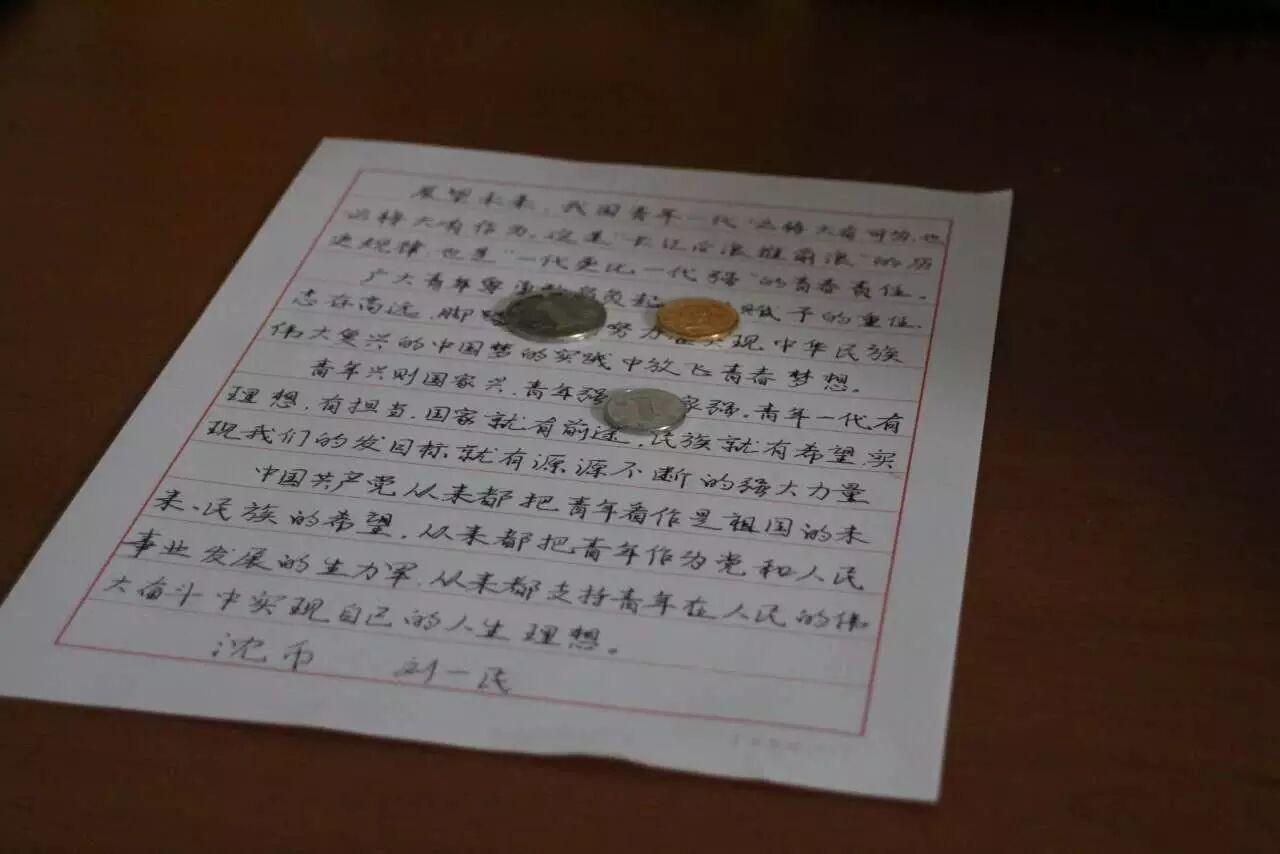 展望未来,我国青年一代必将大有可为,也
必将大有作为。这是"长江后浪推前浪"的历
史规律,也是"一代更比一代强"的青春责任。
广大青年要 负起 赋予的重任,
志存高远,脚 努力在 现中华民族
伟大复兴的中国梦的实践中放飞青春梦想。
青年兴则国家兴,青年强 家强。青年一代有
理想,有担当,国家就有前途,民族就有希望,实
现我们的发目标就有源源不断的强大力量
中国共产党从来都把青年看作是祖国的未
来、民族的希望,从来都把青年作为党和人民
事业发展的生力军,从来都支持青年在人民的伟
大奋斗中实现自己的人生理想。
沈币 刘一民